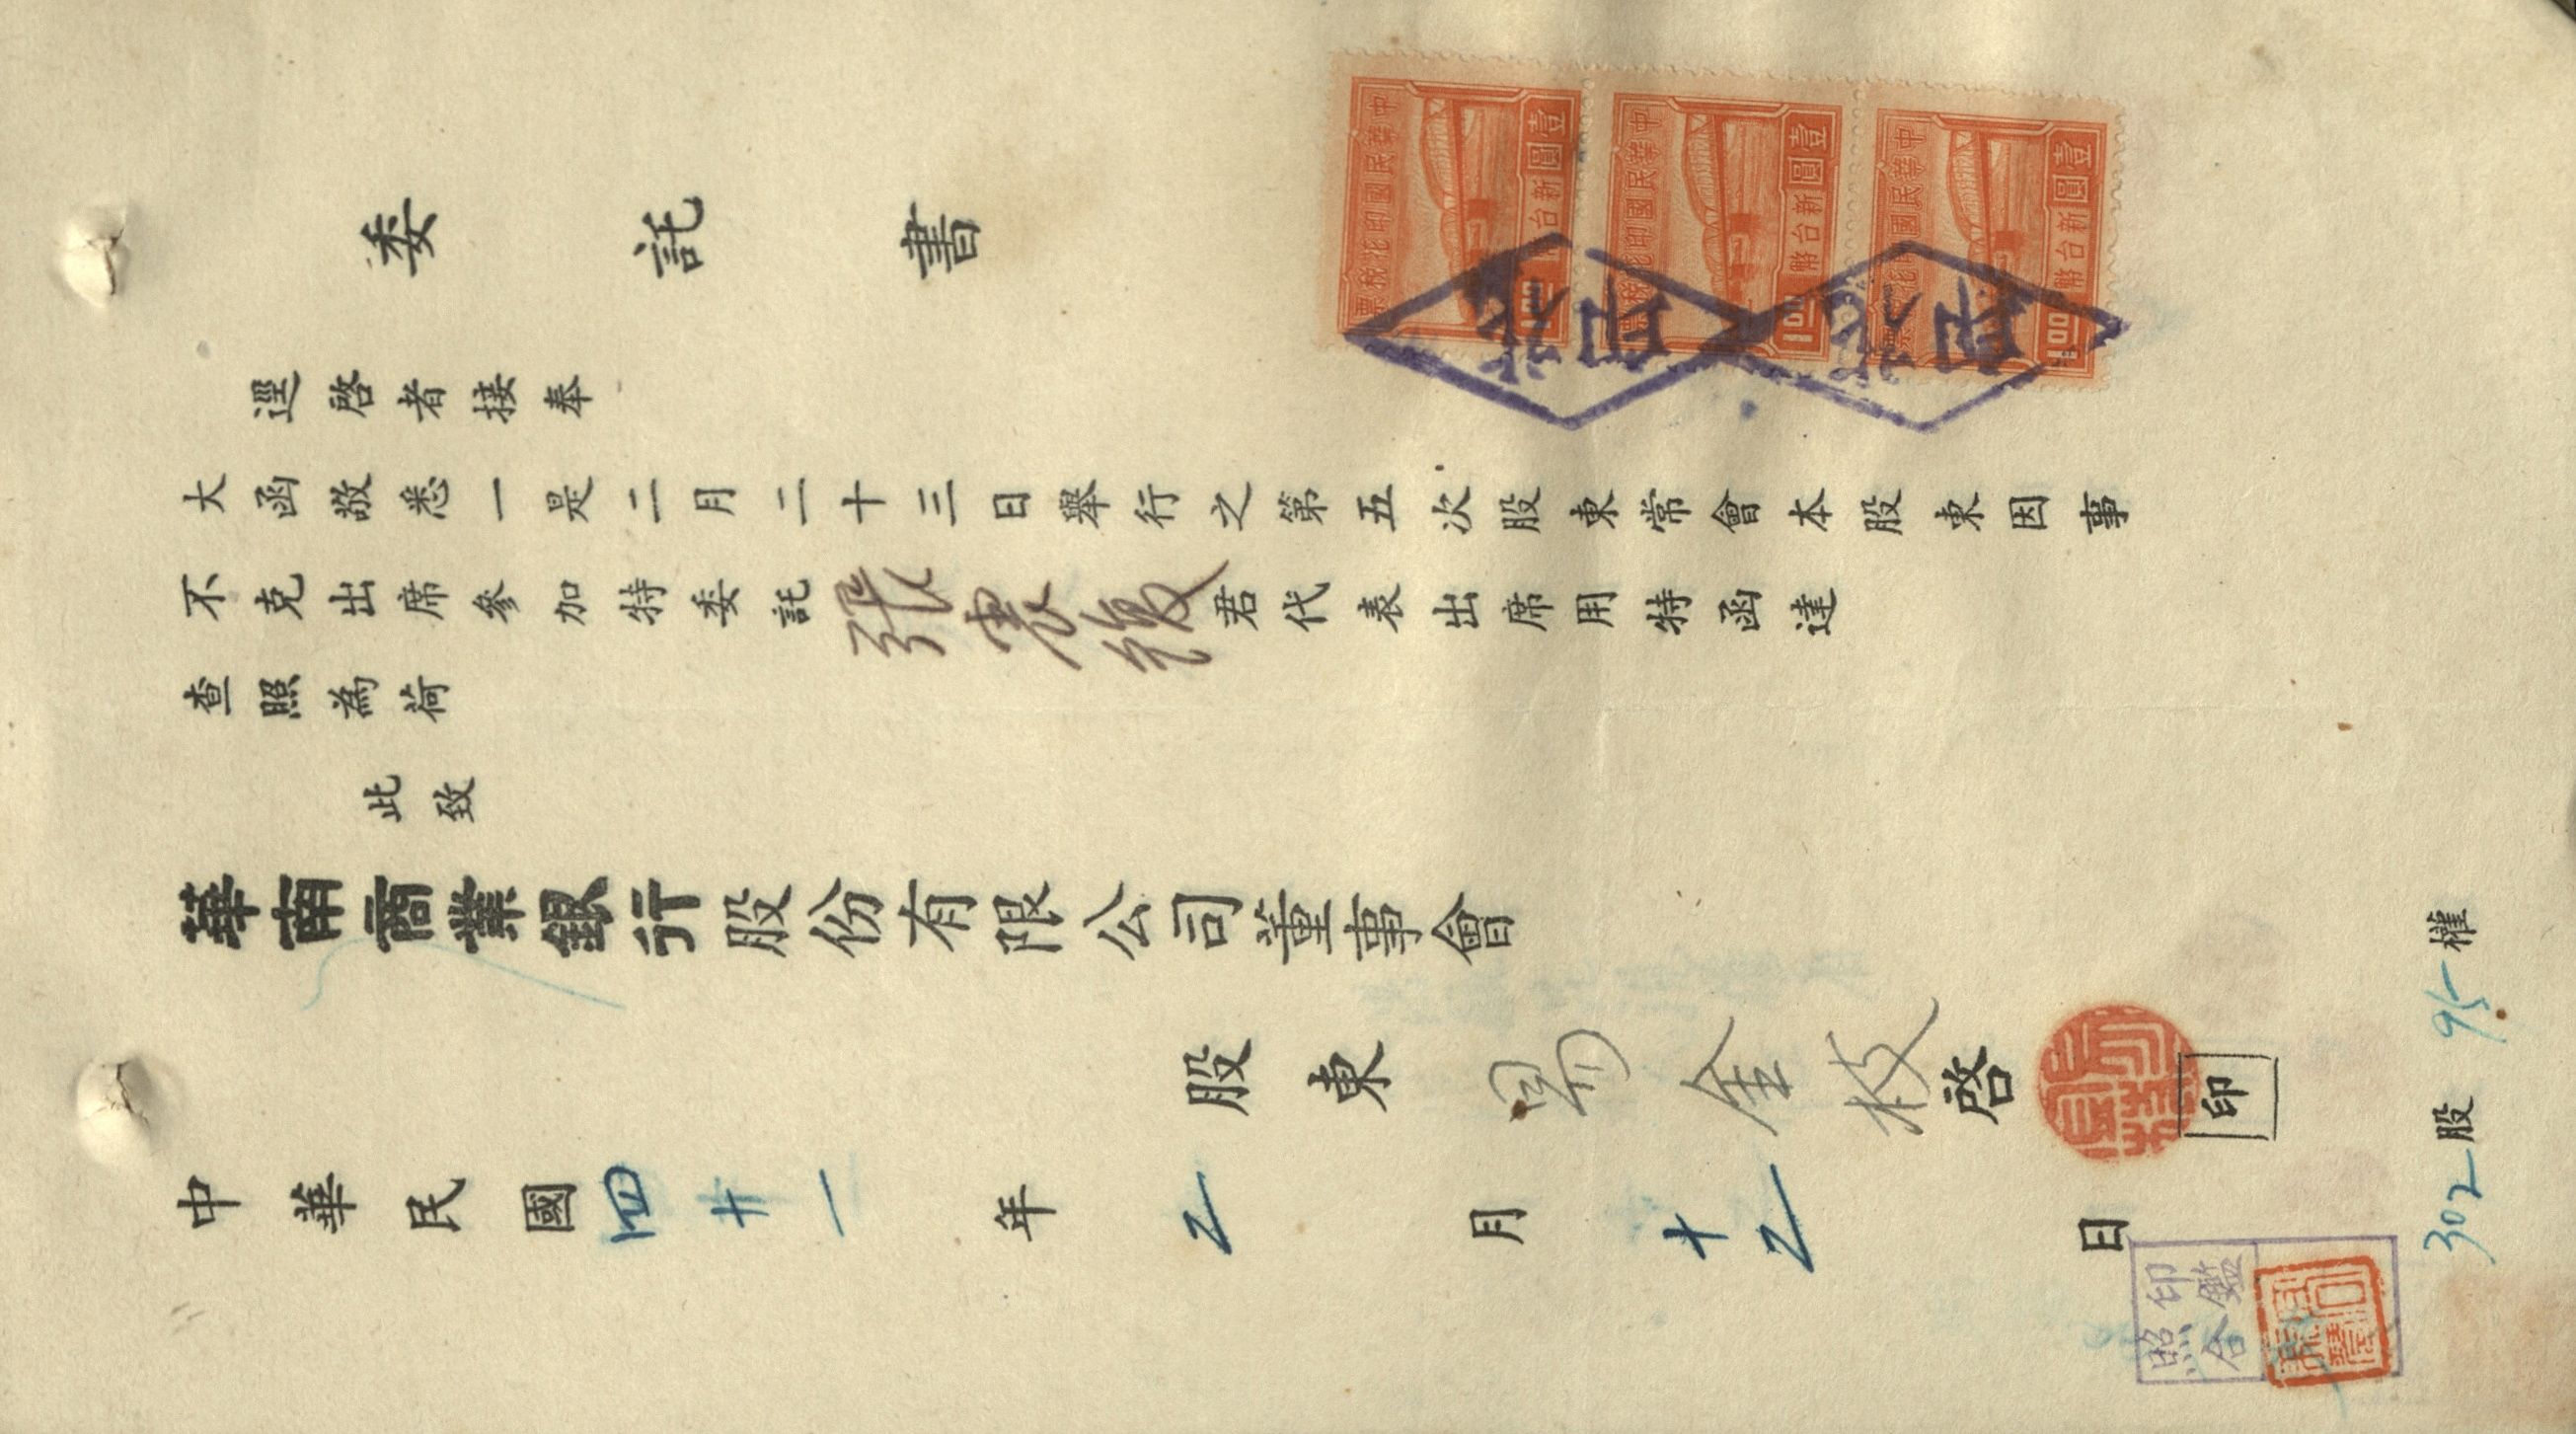 委託書
中華民國印花稅票
壹圓
新台幣
1.00
中華民國印花稅票
壹圓
新台幣
1.00
中華民國印花稅票
壹圓
新台幣
1.00
逕啓者接奉
大函敬悉一是二月二十三日舉行之第五次股東常會本股東因事
不克出席參加特委託張震君代表出席用特函達
查照為荷
此致
華南商業銀行股份有限公司董事會
股東 金枝 啓 印
中華民國四十一年2月十2日
印鑑
照合
302股 95權